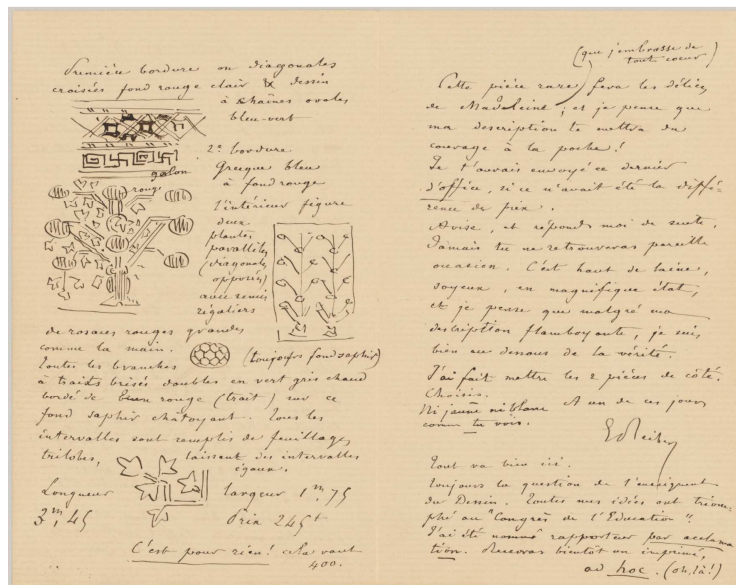 Première bordure en diagonales
croisées fond rouge clair & dessin
à chaînes ovales
bleu-vert
2e bordure
Grecque bleu
à fond rouge
galon
rouge
l'intérieur figure
deux
plantes
parallèles
(diagonales
opposées)
avec semis
réguliers
de rosaces rouges grandes
comme la main.
(toujours fond saphir)
Toutes les branches
à traits brisés doubles en vert gris chaud
bordé de rouge (trait) sur ce
fond saphir châtoyant. Tous les
intervalles sont remplis de feuillages
trilobés, laissant des intervalles
égaux.
Longueur largeur 1m,75
3m,45 Prix 245f
C'est pour rien! cela vaut
400.
(que j'embrasse de
tout coeur)
Cette pièce rare fera les délices
de Madeleine; et je pense que
ma description te mettra du
courage à la poche!
Je t'aurais envoyé ce dernier
d'office, si ce n'avait été la diffé-
rence de prix.
Avise, et réponds moi de suite,
Jamais tu ne retrouveras pareille
occasion. C'est haut de laine,
soyeux, en magnifique état,
et je pense que malgré ma
description flamboyante, je suis
bien au dessous de la vérité.
J'ai fait mettre les 2 pièces de côté.
Choisis.
Ni jaune ni blanc A un de ces jours
comme tu vois.
Tout va bien ici.
Toujours la question de l'enseignent
du Dessin. Toutes mes idées ont triom-
phé au "Congrès de l'Education".
J'ai été nommé rapporteur par acclama
tion. Recevras bientôt un imprimé,
ad hoc. (oh, là!)